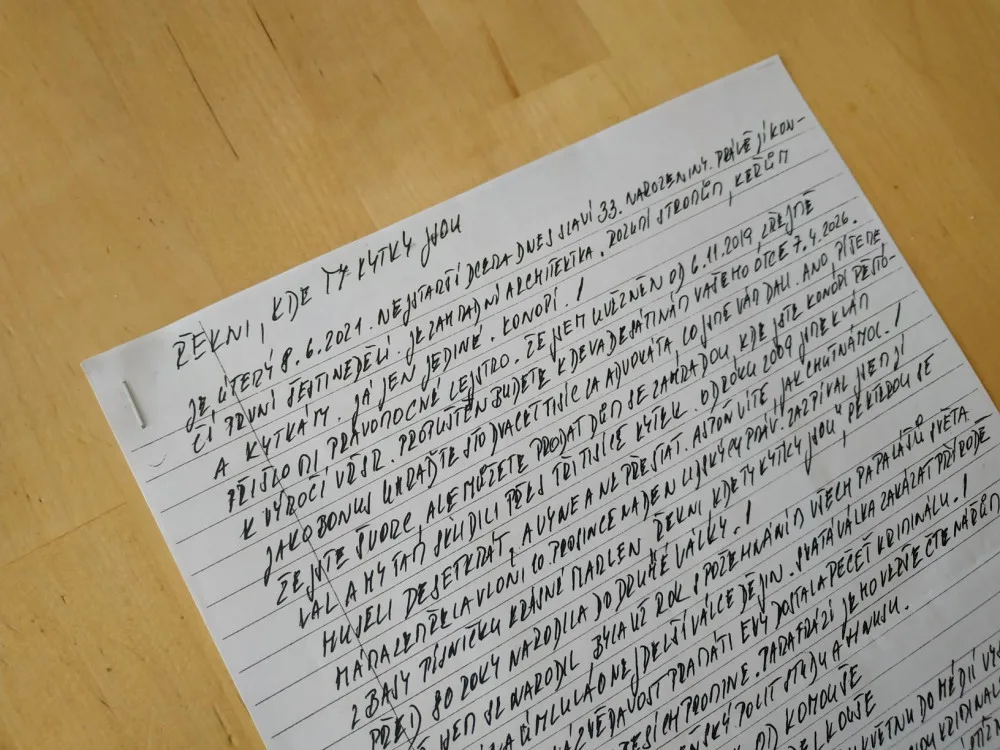 ŘEKNI, KDE TY KYTKY JSOU
JE ÚTERÝ 8.6.2021. NEJSTARŠÍ DCERA DNES SLAVÍ 33. NAROZENINY. PRÁVĚ JÍ KON-
ČÍ PRVNÍ ŠESTINEDĚLÍ. JE ZAHRADNÍ ARCHITEKTKA. ROZUMÍ STROMŮM, KEŘŮM
A KYTKÁM. JÁ JEN JEDINÉ. KONOPÍ.!
PŘIŠLO MI PRAVOMOCNÉ LEJSTRO. ŽE JSEM UVĚZNĚN OD 6.11.2019, ZŘEJMĚ
K VÝROČÍ VŘSR. PROPUŠTĚN BUDETE K DEVADESÁTINÁM VAŠEHO OTCE 7.4.2026.
JAKO BONUS UHRAĎTE STO DVACET TISÍC ZA ADVOKÁTA, CO JSME VÁM DALI. ANO, PÍŠEME,
ŽE JSTE ŠVORC, ALE MŮŽETE PRODAT DŮM SE ZAHRADOU, KDE JSTE KONOPÍ PĚSTO-
VAL A MY TAM SKLIDILI PŘES TŘI TISÍCE KYTEK. OD ROKU 2009 JSME K VÁM
MUSELI DESETKRÁT, A VY NE A NE PŘESTAT. ASPOŇ VÍTE, JAK CHUTNÁ MOC.!
MÁMA ZEMŘELA VLONI 10. PROSINCE NA DEN LIDSKÝCH PRÁV. ZAZPÍVAL JSEM JÍ
Z BASY PÍSNIČKU KRÁSNÉ MARLEN ŘEKNI, KDE TY KYTKY JSOU,
PŘED 80 ROKY NARODILA DO DRUHÉ VÁLKY.!
SE NARODIL BYLA UŽ ROK S POŽEHNÁNÍM VŠECH PAPALÁŠŮ SVĚTA
NEJDELŠÍ VÁLCE DĚJIN. SVATÁ VÁLKA ZAKÁZAT PŘÍRODĚ
ZVĚDAVOST PRAMÁTI EVY DOSTALA PEČEŤ KRIMINÁLU.!
PARAFRÁZI JEHO VERŠE
STUDU A HNUSU.
OD KOMOUŠE
KVĚTNU DO MÉDIÍ